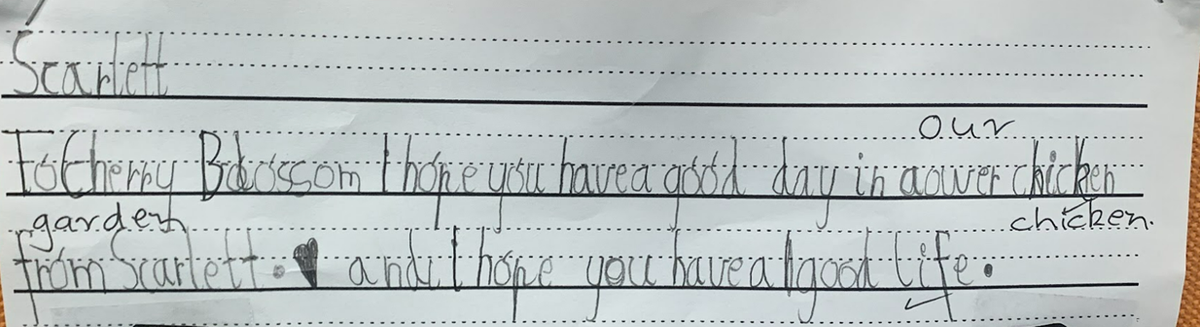 Scarlett
our
To Cherry Bolossom I hope you have a good day in aower chicken
garden chicken.
from Scarlett. ♥ and I hope you have a good life.